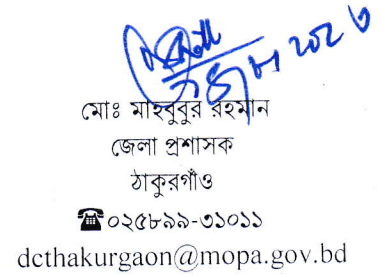 মোঃ মাহবুবুর রহমান
জেলা প্রশাসক
ঠাকুরগাঁও
☎০২৫৮৯৯-৩১০১১
dcthakurgaon@mopa.gov.bd